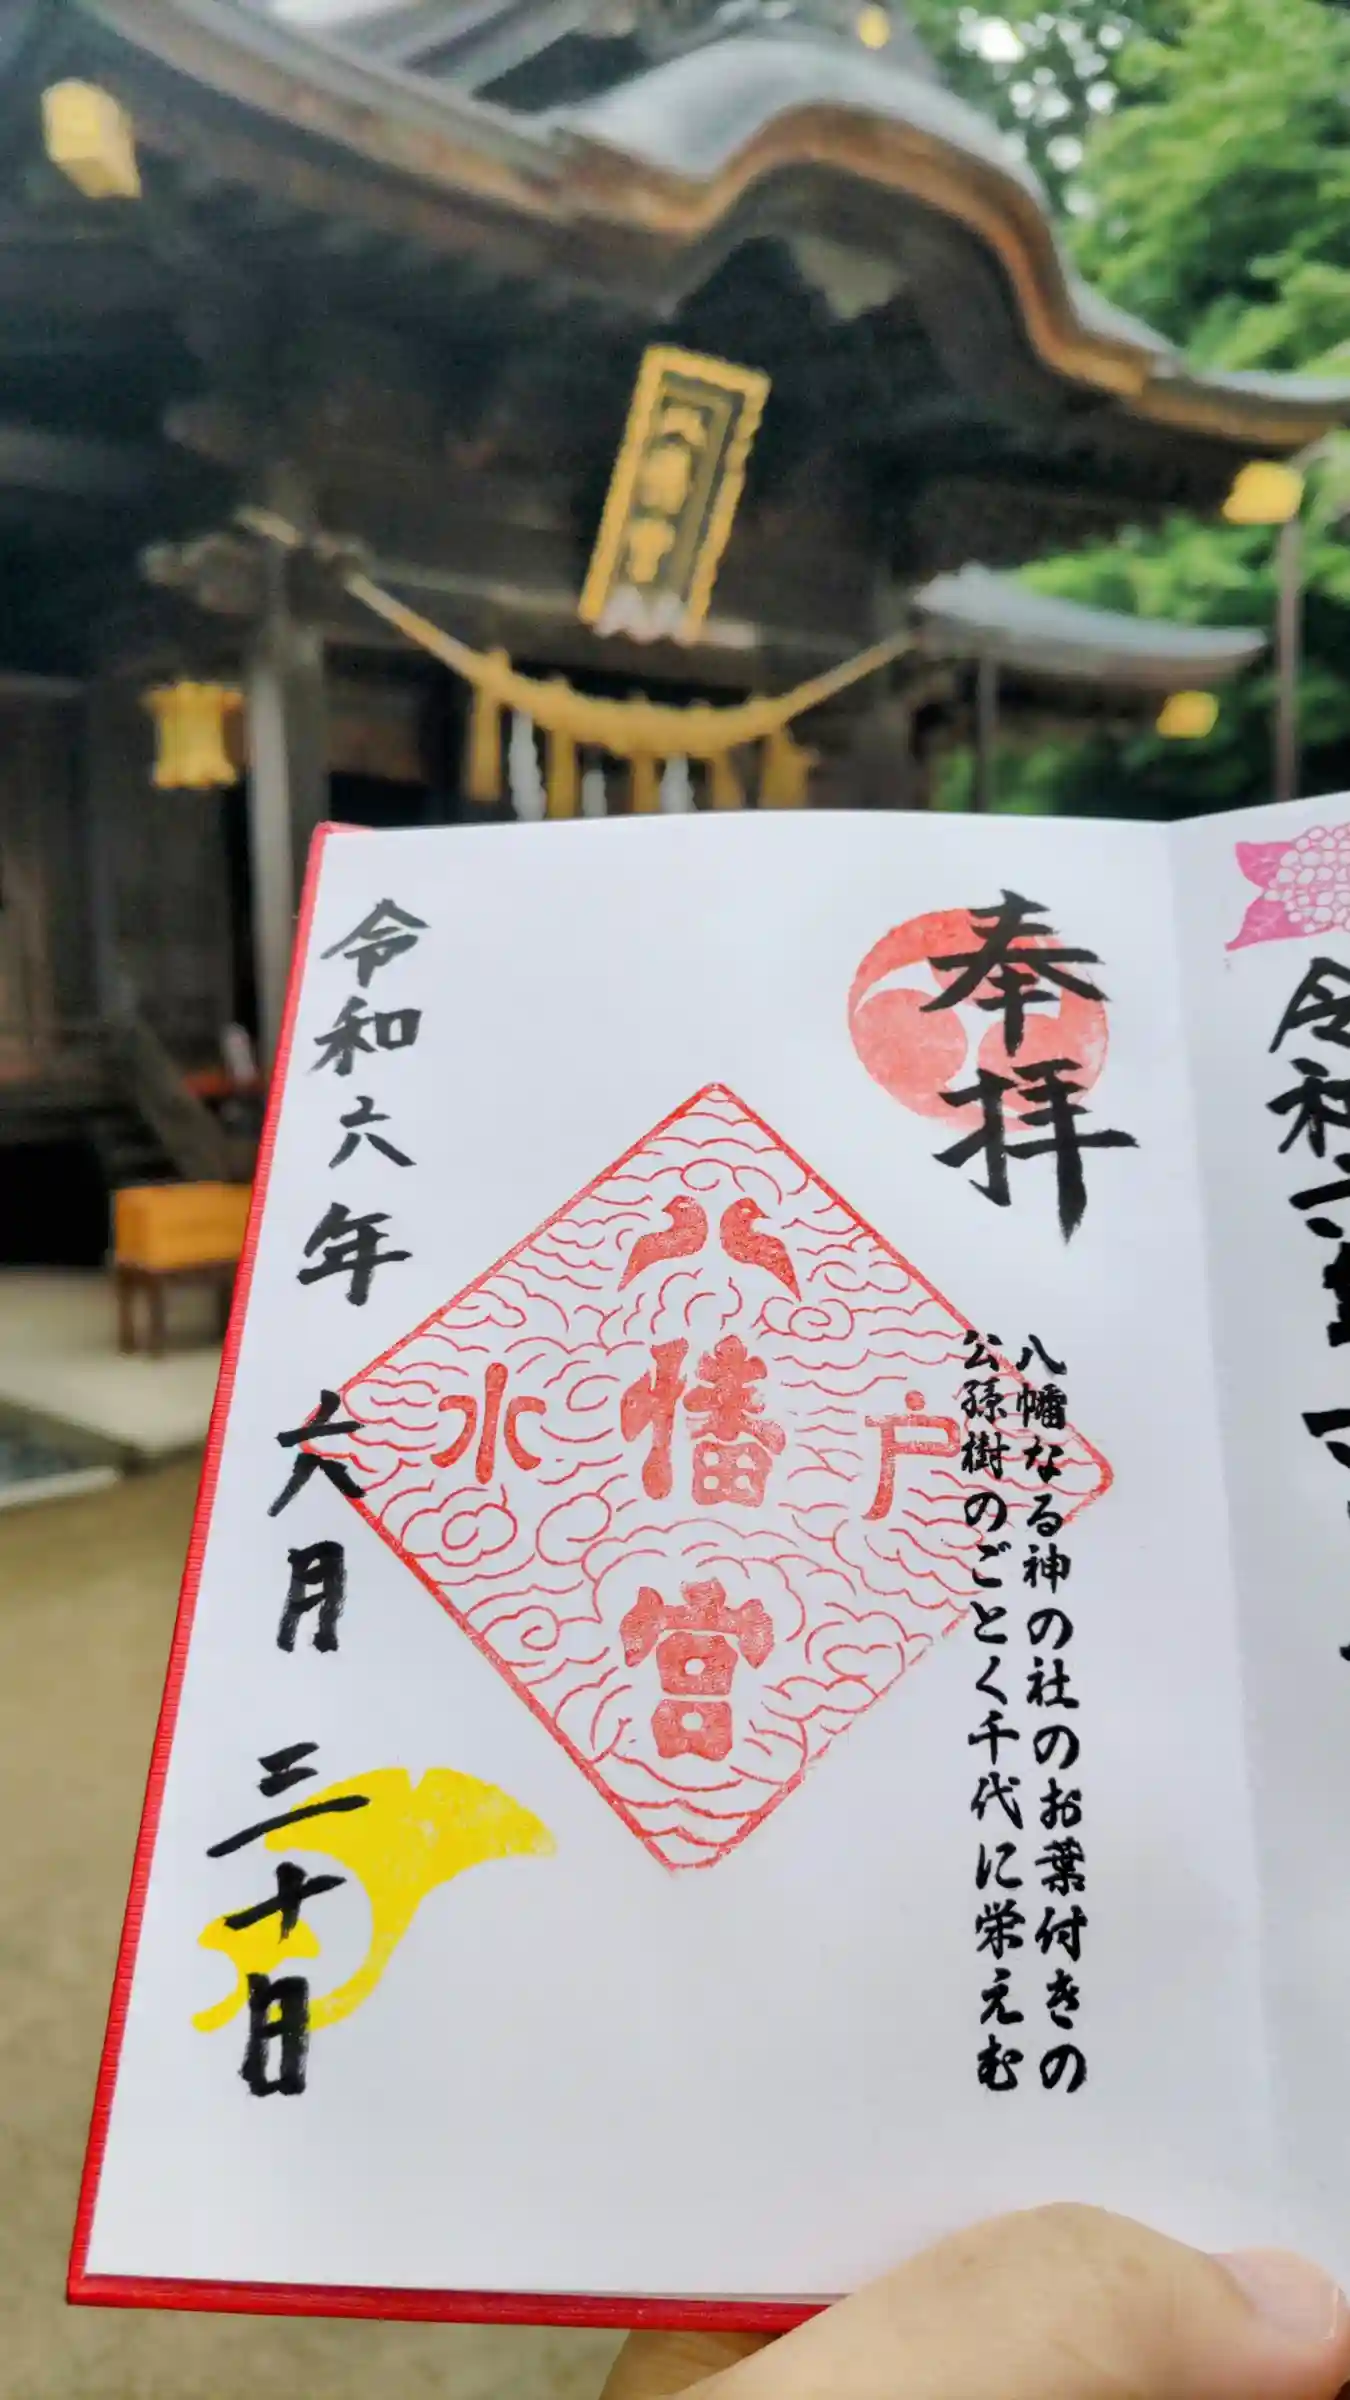 八幡宮
奉拝
八幡なる神の社のお葉付きの
公孫樹のごとく千代に栄えむ
水戸
八幡宮
令和六年
六月
三十日
令和六